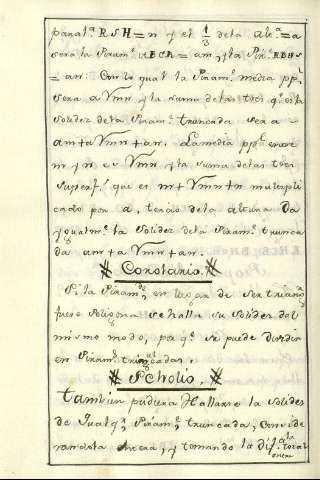 paral.ª RSH = n y el 1/3 de la Alt.ª = a
sera la Piram.e ABCR = am, y la Pir.e RBHS
= an. Con lo qual la Piram.e media pp.l
sera a √mn y la suma de las tres q.e es la
solidez de la Piram.e truncada sea a
am + a √mn + an. La media pp.l entre
m y n es √mn y la suma de las tres
superf.s que es m + √mn + n multipli
cado por a, tercio de la altura da
ygualm.te la solidez de la Piram.e trunca
da am + a √mn + an.
Corolario.
Si la Piram.de en lugar de ser triang.r
fuese Poligona se halla su solidez del
mismo modo, pa q.e se puede dividir
en Piram.s triang.res truncadas.
Scholio.
Tambien pudiera Hallarse la solidez
de qualq.r Piram.e truncada, conside
randola entera, y tomando la dif.a a la total